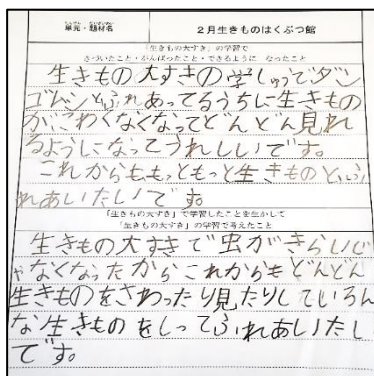 単元・題材名
２月生きものはくぶつ館
「生きもの大すき」の学習で
きづいたこと・がんばったこと・できるように なったこと
生きもの大すきの学しゅうでダン
ゴムシとふれあってるうちに生きもの
がこわくなくなってどんどん見れ
るようになってうれしいです。
これからももっともっと生きものとふ
れあいたいです。
「生きもの大すき」で学習したことを生かして
「生きもの大すき」の学習で考えたこと
生きもの大すきで虫がきらいじ
ゃなくなったからこれからもどんどん
生きものをさわったり見たりしていろん
な生きものをしってふれあいたい
です。